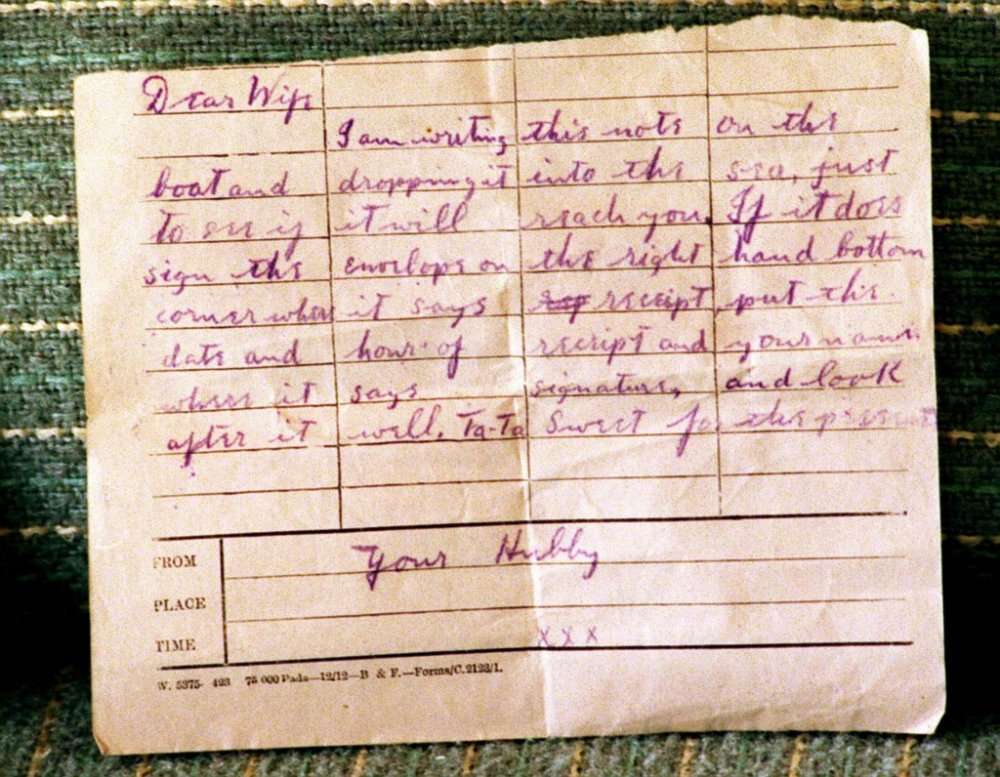 Dear Wife
I am writing this note on the
boat and dropping it into the sea, just
to see if it will reach you. If it does
sign the envelope on the right hand bottom
corner where it says receipt, put the
date and hour of receipt and your name
where it says signature, and look
after it well. Ta-Ta Sweet for the present
Your Hubby
x x x
FROM
PLACE
TIME
W. 5375- 423 75 000 Pads—12/12—B & F.—Forms/C.2123/1.